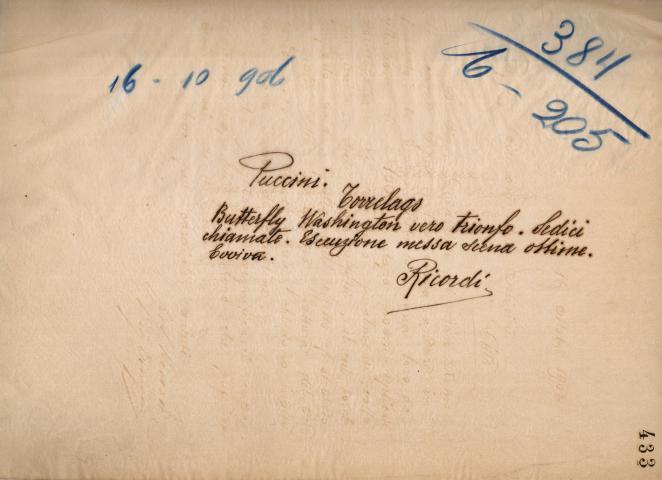 384
6 - 205
16 - 10 906
Puccini. Torrelago
Butterfly Washington vero trionfo. Sedici
chiamate. Esecuzione messa scena ottime.
Evviva.
Ricordi
433